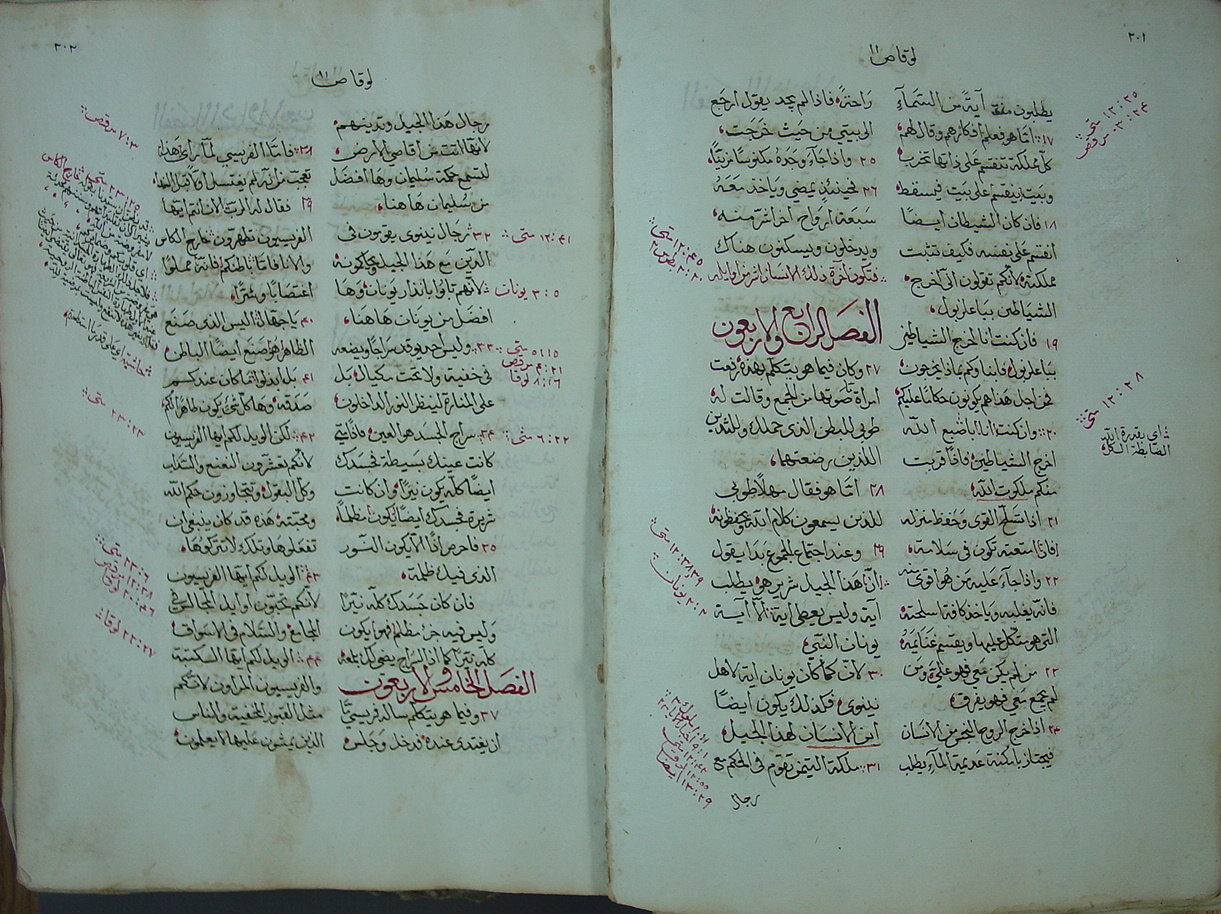 ٢٠١
لوقا ص ١١
يطلبون منه آية من السماء
١٧ اما هو فعلم افكارهم وقال لهم
كل مملكة تنقسم على ذاتها تخرب
وبيت ينقسم على بيت فيسقط
١٨ فان كان الشيطان ايضا
انقسم على نفسه فكيف تثبت
مملكته لانكم تقولون اني اخرج
الشياطين بباعلزبول
١٩ فان كنت انا اخرج الشياطين
بباعلزبول فابناؤكم بماذا يخرجون
من اجل هذا هم يكونون حكاما عليكم
٢٠ وان كنت انا باصبع الله
اخرج الشياطين فاذا قربت
منكم ملكوت الله
٢١ اذا تسلح القوى وحفظ منزله
فان امتعته تكون في سلامة
٢٢ واذا جاء عليه من هو اقوى منه
فانه يغلبه وياخذ كافة اسلحته
التي هو متكل عليها ويقسم غنايمه
٢٣ من لم يكن معي فهو علي ومن
لم يجمع معي فهو يفرق
٢٤ اذا خرج الروح النجس من الانسان
فيجتاز بامكنة عديمة الماء يطلب
راحة فاذا لم يجد يقول ارجع
الى بيتي من حيث خرجت
٢٥ واذا جاء وجده مكنوسا مزينا
٢٦ فحينئذ يمضي وياخذ معه
سبعة ارواح اخر اشر منه
ويدخلون ويسكنون هناك
فتكون اخرة ذلك الانسان اشر من اوايله
الفصل الرابع والاربعون
٢٧ وكان فيما هو يتكلم بهذه رفعت
امراة صوتها من الجمع وقالت له
طوبى للبطن الذي حملك وللثديين
اللذين رضعتهما
٢٨ اما هو فقال مهلا طوبى
للذين يسمعون كلام الله ويحفظونه
٢٩ وعند اجتماع الجموع بدا يقول
ان هذا الجيل شرير هو يطلب
آية وليس يعطى آية الا آية
يونان النبي
٣٠ لان كما كان يونان آية لاهل
نينوى فكذلك يكون ايضا
ابن الانسان لهذا الجيل
٣١ ملكة التيمن تقوم في الحكم مع
رجال
١٢:٢٥ متى
٣:٢٤ مرقص
١٢:٢٨ متى
اي بقدرة الله
الضابطة الكل
١٢:٤٥ متى
١٢:٣٨،٣٩ متى
٢:٢ يونان
٢٠٢
لوقا ص ١١
رجال هذا الجيل وتدينهم
لانها اتت من اقاصي الارض
لتسمع حكمة سليمان وها افضل
من سليمان هاهنا
٣٢ رجال نينوى يقومون في
الدين مع هذا الجيل ويحاكمونه
لانهم تابوا بانذار يونان وها
افضل من يونان هاهنا
٣٣ وليس احد يوقد سراجا ويضعه
في خفية ولا تحت مكيال بل
على المنارة لينظر النور الداخلون
٣٤ سراج الجسد هو العين فاذا متى
كانت عينك بسيطة فجسدك
ايضا كله يكون نيرا وان كانت
شريرة فجسدك ايضا يكون مظلما
٣٥ فاحرص اذا الا يكون النور
الذى فيك ظلمة
فان كان جسدك كله نيرا
وليس فيه جزء مظلم فهو يكون
كله نيرا كما ان السراج يضي لك بلمعه
الفصل الخامس والاربعون
٣٧ وفيما هو يتكلم ساله فريسي
ان يغتدى عنده فدخل وجلس
٣٨ فاما الفريسي لما راى هذا
تعجب من انه لم يغتسل اولا قبل الغدا
٣٩ فقال له الرب الان انتم ايها
الفريسيون تطهرون خارج الكاس
والانا فاما باطنكم فانه مملوا
اغتصابا وشرا
٤٠ يا جهال اليس الذى صنع
الظاهر هو صنع ايضا الباطن
٤١ بل ابذلوا ما كان عندكم
صدقة وها كل شي يكون طاهرا لكم
٤٢ لكن الويل لكم ايها الفريسيون
لانكم تعشرون النعنع والسذاب
وكل البقول وتتجاوزون حكم الله
ومحبته هذه قد كان ينبغي ان
تفعلوها وتلك لا تتركوها
٤٣ الويل لكم ايها الفريسيون
لانكم تحبون اوايل المجالس في
المجامع والسلام في الاسواق
٤٤ الويل لكم ايها الكتبة
والفريسيون المراوون لانكم
مثل القبور المخفية والناس
الذين يمشون عليها لا يعلمون
١٢:٤١ متى
٣:٥ يونان
٥:١٥ متى
٤:٢١ مرقص
٨:١٦ لوقا
٦:٢٢ متى
٧:٣ مرقص
٢٣:٢٥ متى
٢٣:٢٣ متى
٢٣:٦ متى
١٢:٣٨ مرقص
٢٠:٤٦ لوقا